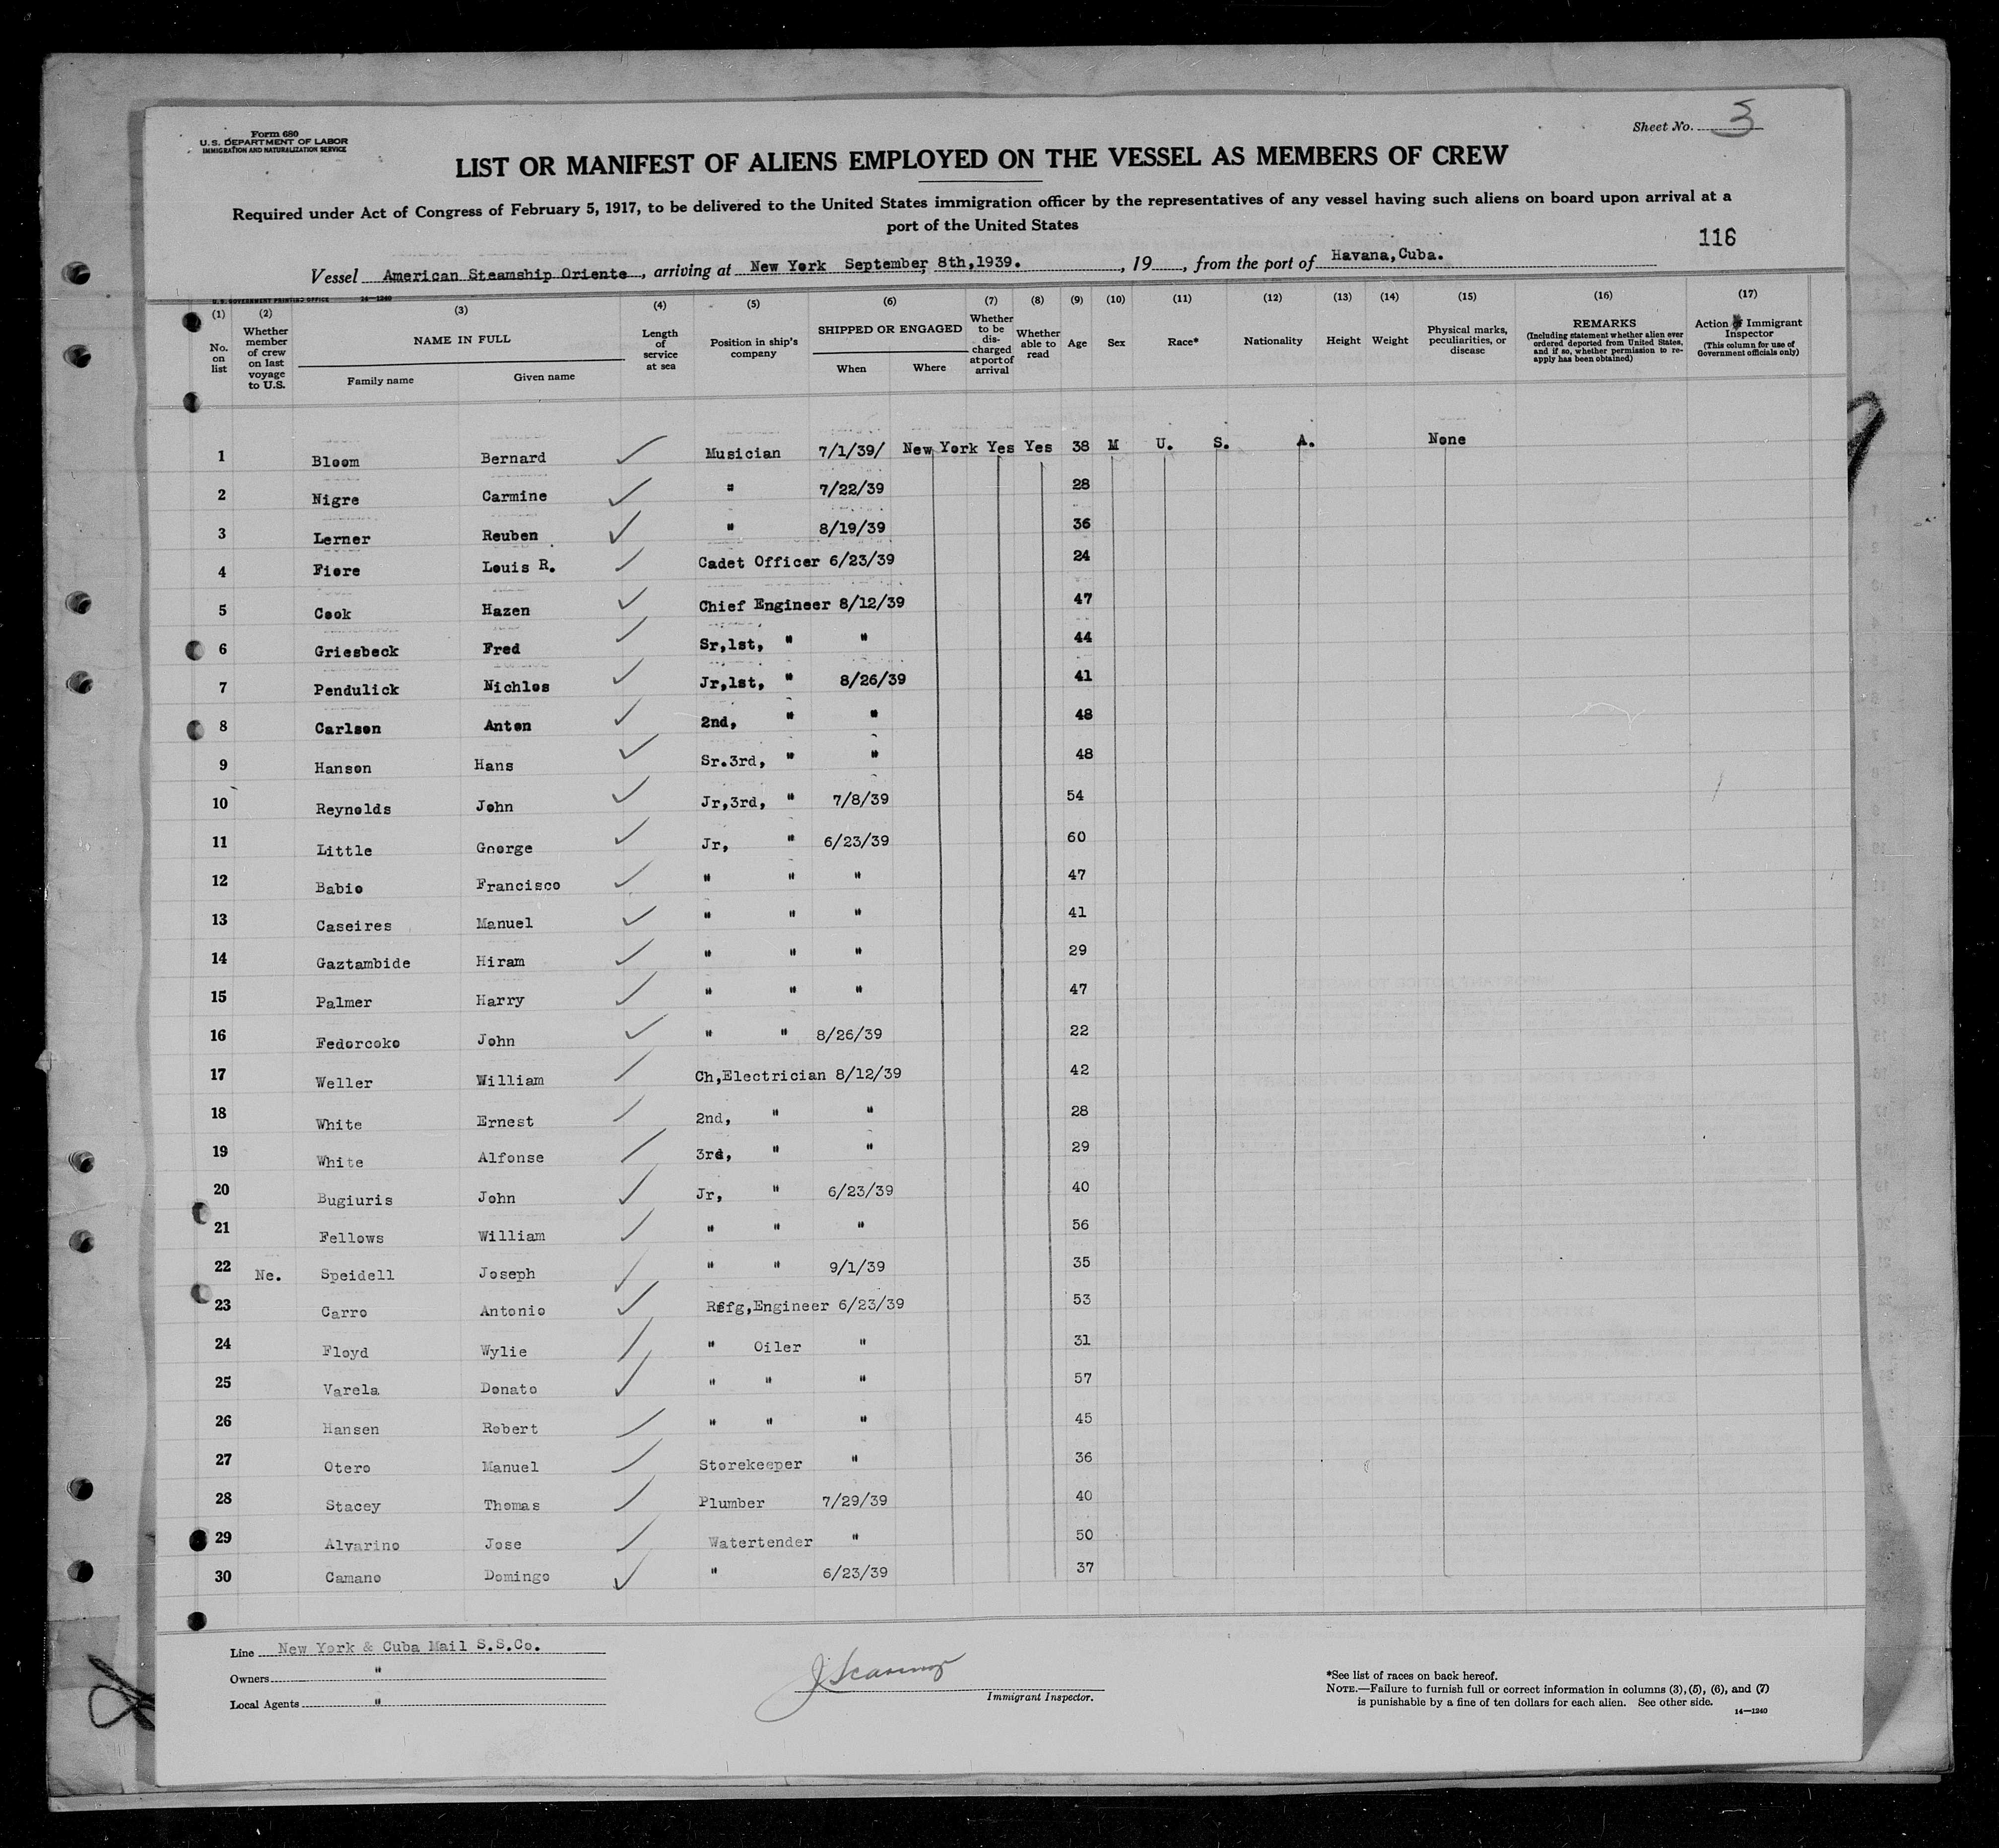 Form 680
U. S. DEPARTMENT OF LABOR
IMMIGRATION AND NATURALIZATION SERVICE
Sheet No. 3
LIST OR MANIFEST OF ALIENS EMPLOYED ON THE VESSEL AS MEMBERS OF CREW
Required under Act of Congress of February 5, 1917, to be delivered to the United States immigration officer by the representatives of any vessel having such aliens on board upon arrival at a
port of the United States
116
Vessel American Steamship Oriente, arriving at New York September 8th, 1939. , 19 , from the port of Havana, Cuba.
U. S. GOVERNMENT PRINTING OFFICE 14—1240
(1) (2) (3) (4) (5) (6) (7) (8) (9) (10) (11) (12) (13) (14) (15) (16) (17)
No. on list
Whether member of crew on last voyage to U.S.
NAME IN FULL
Family name
Given name
Length of service at sea
Position in ship's company
SHIPPED OR ENGAGED
When
Where
Whether to be discharged at port of arrival
Whether able to read
Age
Sex
Race*
Nationality
Height
Weight
Physical marks, peculiarities, or disease
REMARKS
(Including statement whether alien ever ordered deported from United States, and if so, whether permission to reapply has been obtained)
Action of Immigrant Inspector
(This column for use of Government officials only)
1 Bloom Bernard Musician 7/1/39/ New York Yes Yes 38 M U. S. A. None
2 Nigre Carmine " 7/22/39 28
3 Lerner Reuben " 8/19/39 36
4 Fiore Louis R. Cadet Officer 6/23/39 24
5 Cook Hazen Chief Engineer 8/12/39 47
6 Griesbeck Fred Sr,1st, " " 44
7 Pendulick Nichlos Jr,1st, " 8/26/39 41
8 Carlson Anton 2nd, " " 48
9 Hanson Hans Sr.3rd, " " 48
10 Reynolds John Jr,3rd, " 7/8/39 54
11 Little George Jr, " 6/23/39 60
12 Babio Francisco " " " 47
13 Caseires Manuel " " " 41
14 Gaztambide Hiram " " " 29
15 Palmer Harry " " " 47
16 Fedorcoko John " " 8/26/39 22
17 Weller William Ch,Electrician 8/12/39 42
18 White Ernest 2nd, " " 28
19 White Alfonse 3rd, " " 29
20 Bugiuris John Jr, " 6/23/39 40
21 Fellows William " " " 56
22 No. Speidell Joseph " " 9/1/39 35
23 Carro Antonio Rffg,Engineer 6/23/39 53
24 Floyd Wylie " Oiler " 31
25 Varela Donato " " " 57
26 Hansen Robert " " " 45
27 Otero Manuel Storekeeper " 36
28 Stacey Thomas Plumber 7/29/39 40
29 Alvarino Jose Watertender " 50
30 Camano Domingo " 6/23/39 37
Line New York & Cuba Mail S.S.Co.
Owners "
Local Agents "
Immigrant Inspector.
*See list of races on back hereof.
NOTE.—Failure to furnish full or correct information in columns (3), (5), (6), and (7)
is punishable by a fine of ten dollars for each alien. See other side.
14—1240